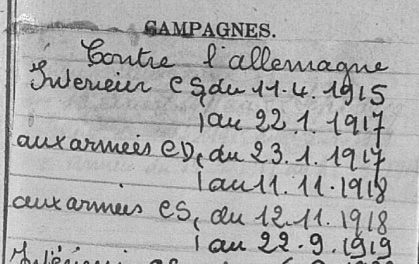 CAMPAGNES.
Contre l'allemagne
Interieur CS, du 11.4.1915
au 22.1.1917
aux armées CD, du 23.1.1917
au 11.11.1918
aux armées CS, du 12.11.1918
au 22.9.1919
Intérieur